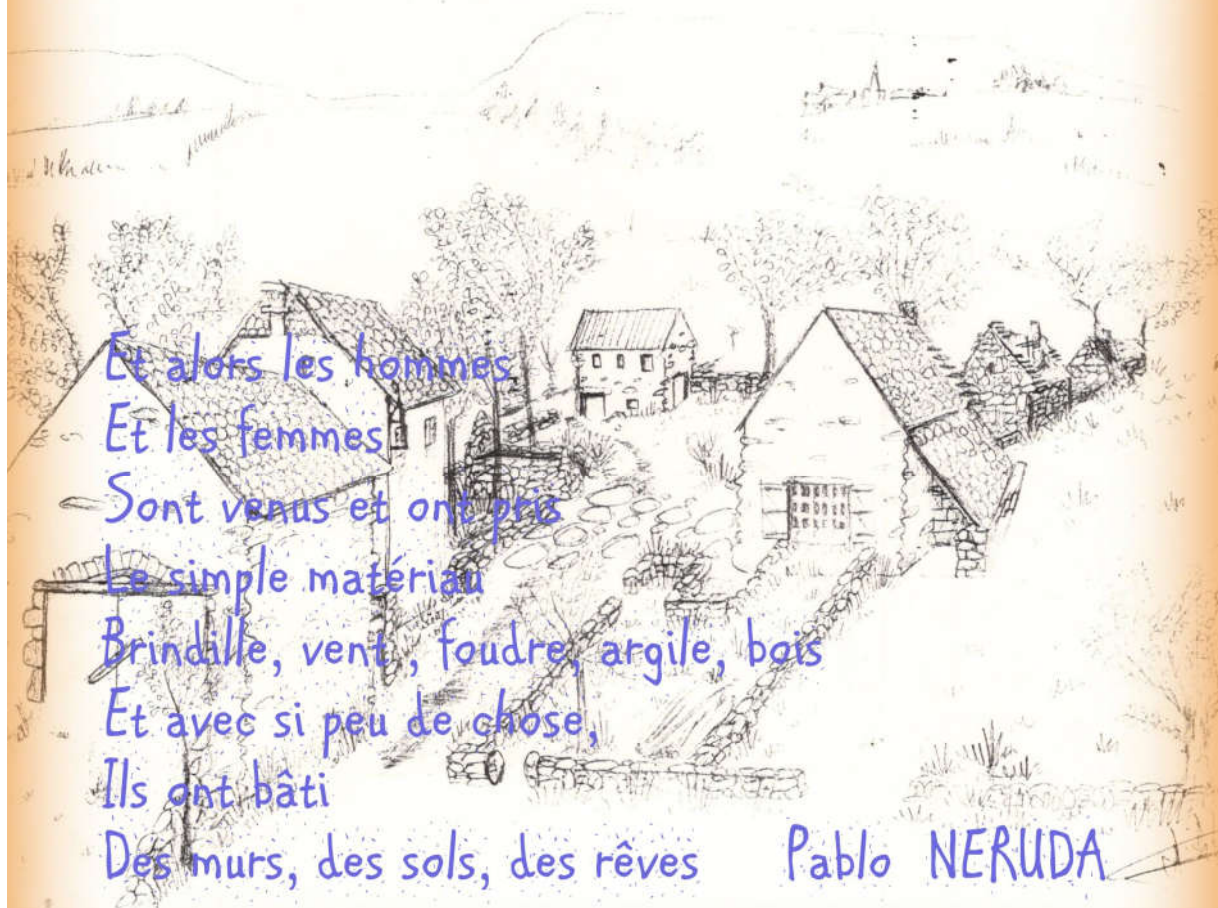 Et alors les hommes
Et les femmes
Sont venus et ont pris
Le simple matériau
Brindille, vent , foudre, argile, bois
Et avec si peu de chose,
Ils ont bâti
Des murs, des sols, des rêves Pablo NERUDA